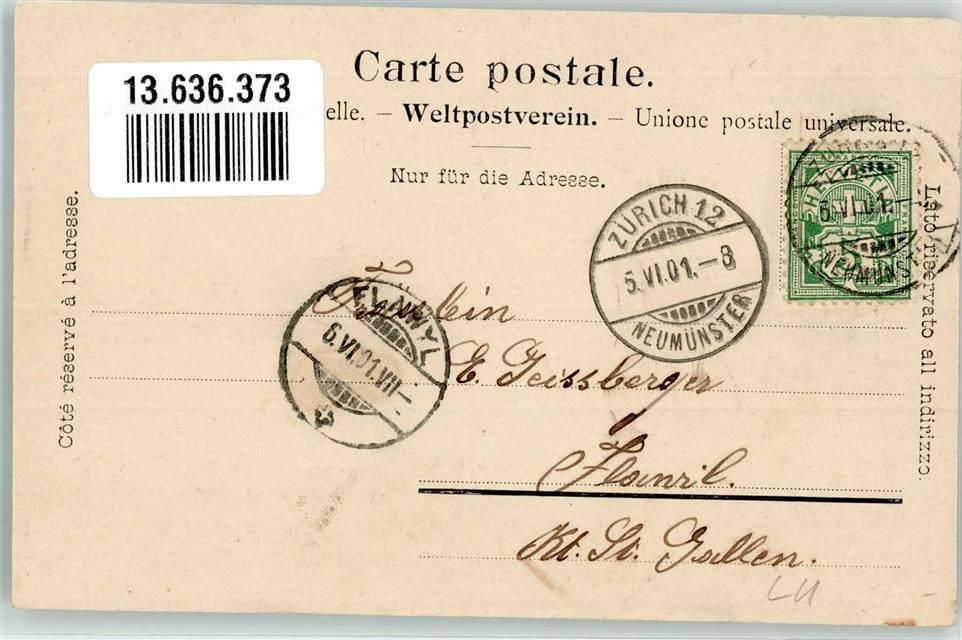 Carte postale.
13.636.373
elle. – Weltpostverein. – Unione postale universale.
Nur für die Adresse.
Côté réservé à l'adresse.
Lato riservato all indirizzo.
ZÜRICH 12
5.VI.01.–8
NEUMÜNSTER
HELVETIA
5.VI.01.
NEUMÜNSTER
FLAWYL
6.VI.01.VII–
Fräulein
E. Geissberger
Flawil.
Kt. St. Gallen.